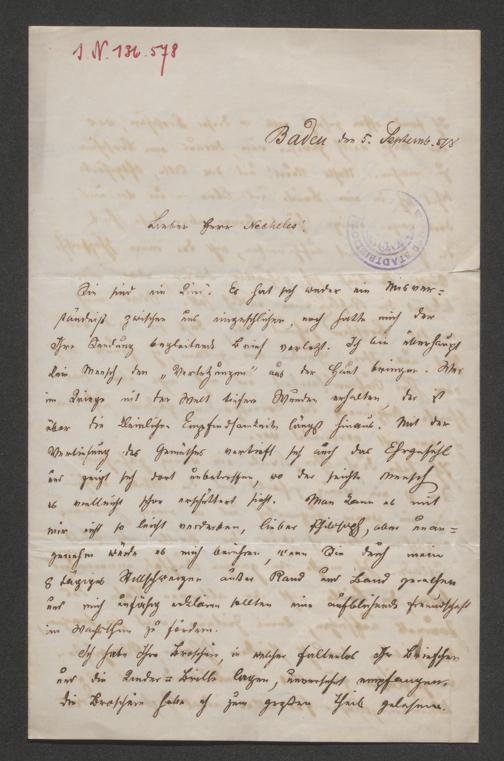 I. N. 136.578
Baden den 5. Septemb. 878
Lieber Herr Necheles!
Sie sind ein Kind. Es hat sich weder ein Misver=
ständniß zwischen uns eingeschlichen, noch hatte mich der
Ihre Sendung begleitende Brief verletzt. Ich bin überhaupt
kein Mensch, den „Verletzungen" aus der Haut bringen. Wer
im Kriege mit der Welt tiefere Wunden erhalten, der ist
über die kleinlichen Empfindsamkeiten längst hinaus. Mit der
Vertiefung des Gemüthes vertieft sich auch das Ehrgefühl
und zeigt sich dort unbetroffen, wo der seichte Mensch
es vielleicht schon erschüttert sieht. Man kann es mit
mir nicht so leicht verderben, lieber Philosoph, aber unan=
genehm würde es mich berühren, wenn Sie durch mein
8 tägiges Stillschweigen außer Rand und Band gerathen
und mich unfähig erklären sollten eine aufblühende Freundschaft
im Wachsthum zu fördern.
Ich habe Ihre Broschüre, in welcher faltenlos Ihr Briefchen
und die Kinder=Brille lagen, unversehrt empfangen.
Die Broschüre habe ich zum großen Theil gelesen.